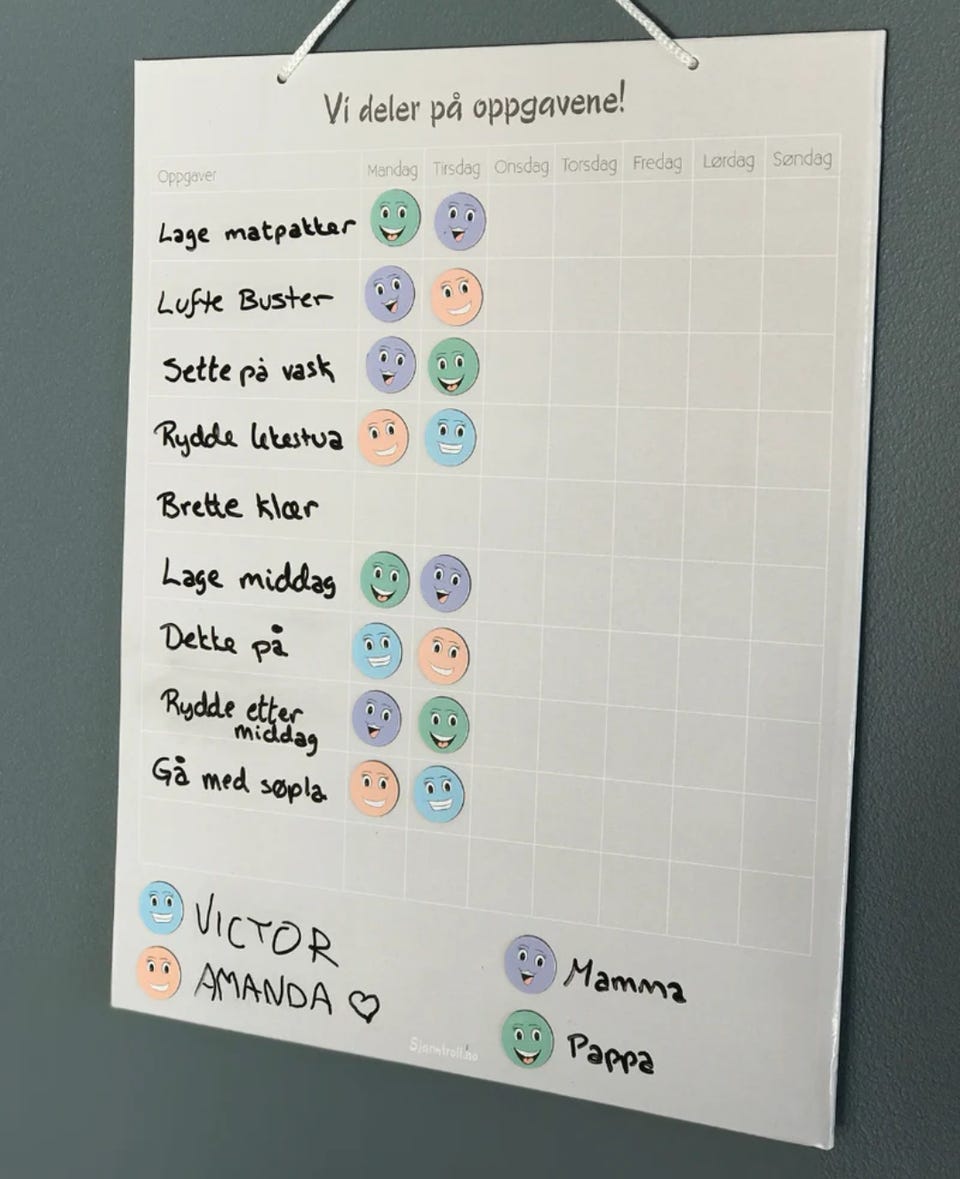 Vi deler på oppgavene!
Oppgaver Mandag Tirsdag Onsdag Torsdag Fredag Lørdag Søndag
Lage matpakker
Lufte Buster
Sette på vask
Rydde lekestua
Brette klær
Lage middag
Dekke på
Rydde etter
middag
Gå med søpla
VICTOR
AMANDA ♡
Mamma
Pappa
Sjarmtroll.no